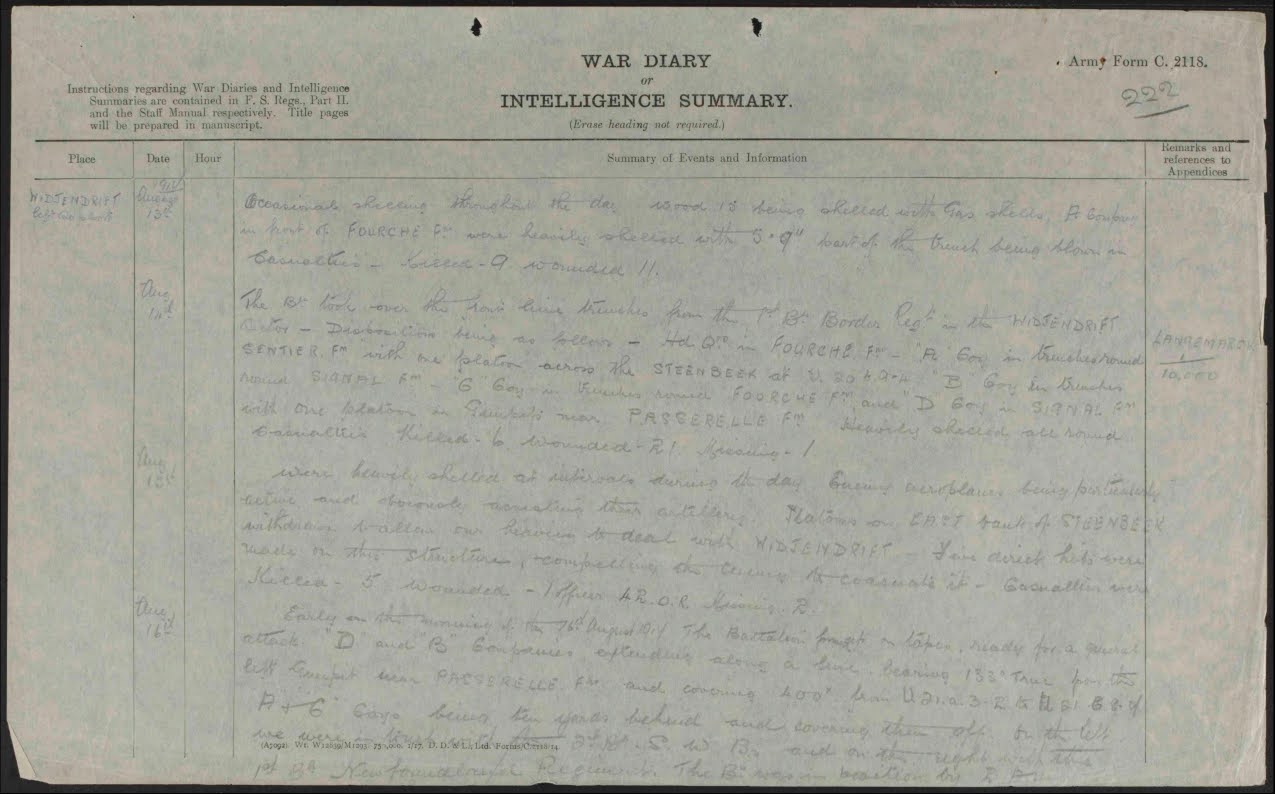 WAR DIARY
or
INTELLIGENCE SUMMARY.
(Erase heading not required.)
Army Form C. 2118.
222
Instructions regarding War Diaries and Intelligence
Summaries are contained in F. S. Regs., Part II.
and the Staff Manual respectively. Title pages
will be prepared in manuscript.
Place Date Hour Summary of Events and Information Remarks and references to Appendices
WIDJENDRIFT
August 13th
Occasional shelling throughout the day wood 15 being shelled with Gas shells, A Company
in front of FOURCHE Fm were heavily shelled with 5.9" part of the trench being blown in
Casualties - Killed - 9 wounded 11.
Aug 14th
The Bn took over the front line trenches from the 1st Bn Border Regt in the WIDJENDRIFT
Sector - Dispositions being as follows - Hd Qrs in FOURCHE Fm - "A" Coy in trenches round
SENTIER Fm with one platoon across the STEENBEEK at U 20 "B" Coy in trenches
round SIGNAL Fm - "C" Coy in trenches round FOURCHE Fm and "D" Coy in SIGNAL Fm
with one platoon in Gunpits near PASSERELLE Fm Heavily shelled all round
Casualties Killed - 6 wounded - 21 Missing - 1
LANGEMARCK
1
10,000
Aug 15th
were heavily shelled at intervals during the day Enemy aeroplanes being particularly
active and obviously assisting their artillery. Platoons on EAST bank of STEENBEEK
withdrawn to allow our heavies to deal with WIDJENDRIFT - direct hits were
made on this structure, compelling the Enemy to evacuate it - Casualties were
Killed - 5 wounded - 1 officer 42 O.R. Missing 2.
Aug 16th
Early on the morning of the 16th August 1917 The Battalion on tapes, ready for a general
attack. "D" and "B" Companies extending along a line bearing 133° True from the
left Gunpit near PASSERELLE Fm and covering 400x from U 21.a.3.2 to U 21
A + "C" Coys being ten yards behind and covering them off. On the left
we were in touch with the 2nd Bn S. W. B. and on the right with the
(A5092). Wt. W12839/M1293. 75 ,000. 1/17. D. D. & L., Ltd. Forms/C.2118/14.
1st Bn Newfoundland Regiment. The Bn was in position by 2 A